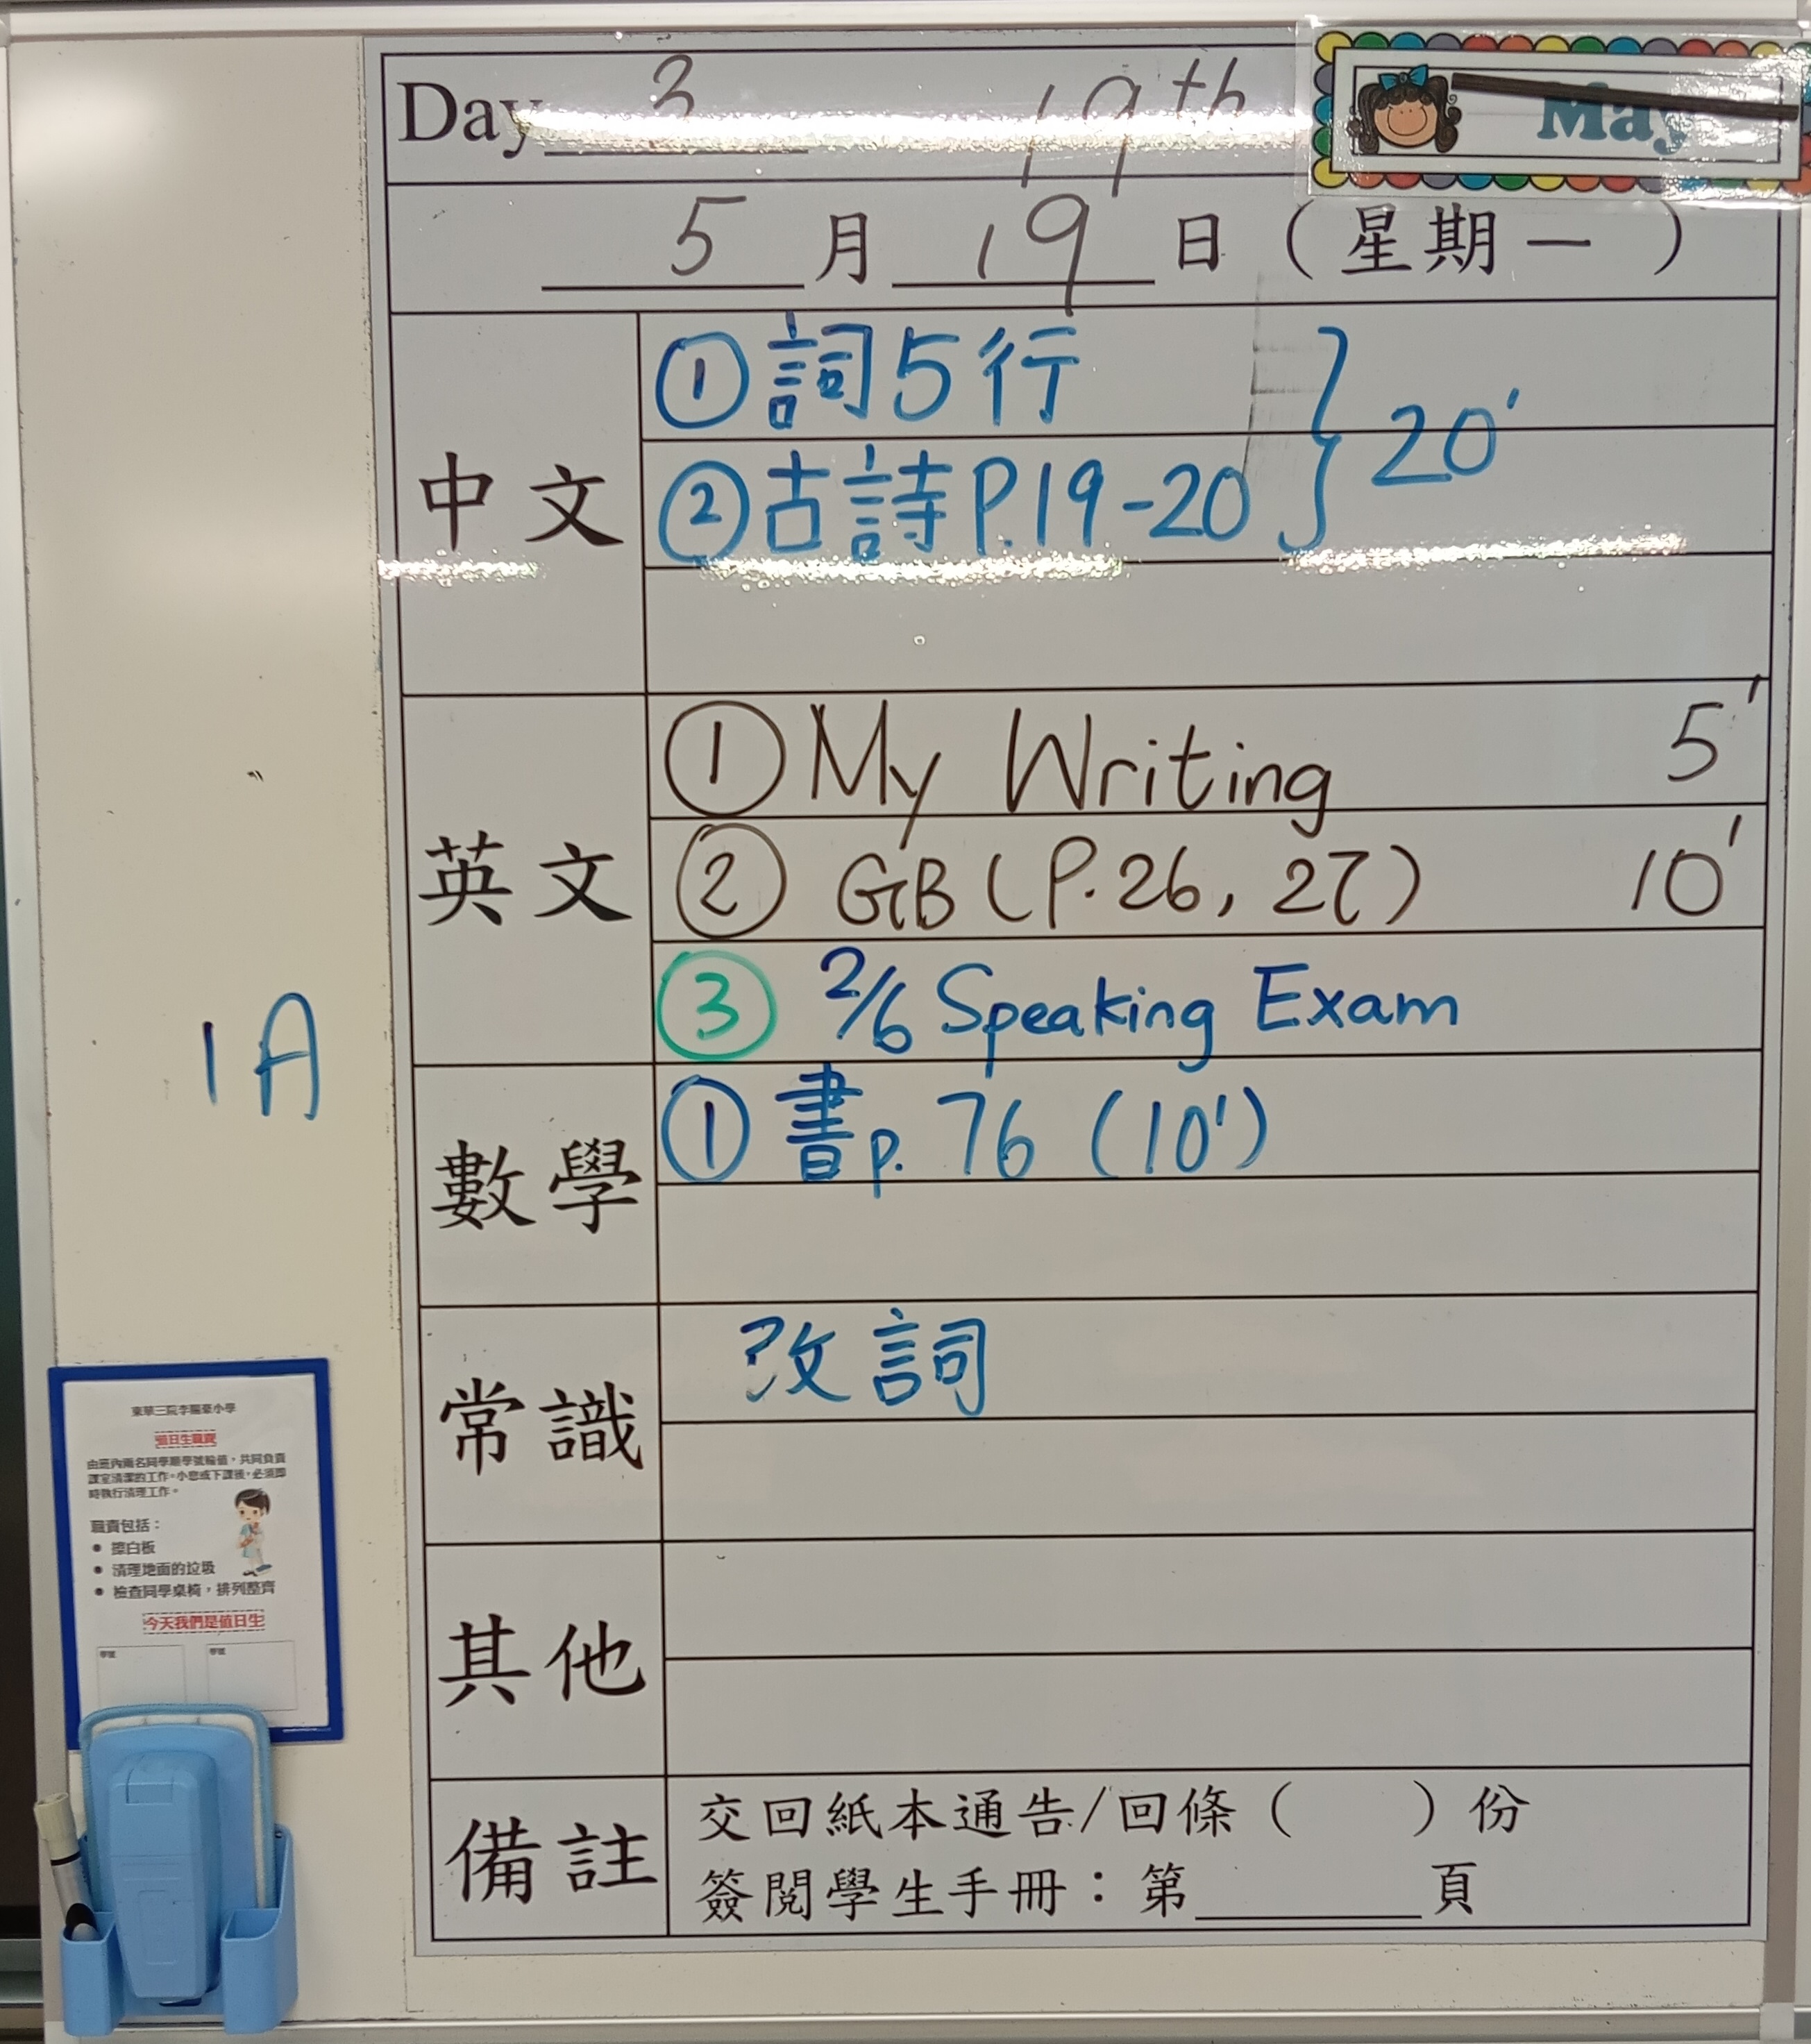 Day 3 19th May
5 月 19 日 (星期一 )
中文
①詞5行
②古詩P.19-20 } 20'
英文
① My Writing 5'
② GB (P.26, 27) 10'
③ 2/6 Speaking Exam
數學
① 書p. 76 (10')
常識
改詞
其他
備註
交回紙本通告/回條( )份
簽閱學生手冊：第______頁
1A
值日生職責
由班內兩名同學順學號輪值，共同負責
課室清潔的工作。小息或下課後，必須即
時執行清理工作。
職責包括：
● 擦白板
● 清理地面的垃圾
● 檢查同學桌椅，排列整齊
今天我們是值日生
學號 學號